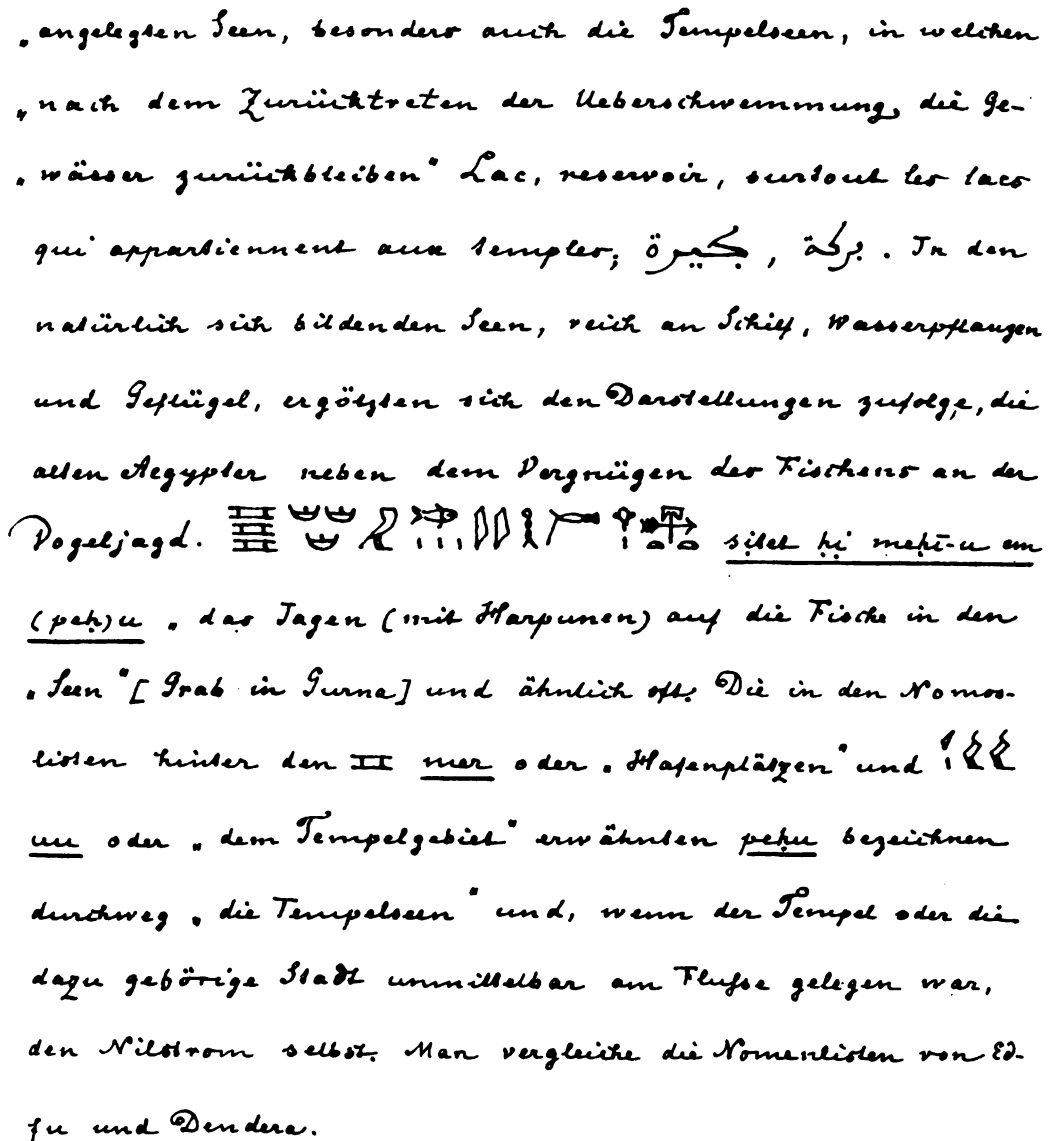 „angelegten Seen, besonders auch die Tempelseen, in welchen
„nach dem Zurücktreten der Ueberschwemmung, die Ge-
„wässer zurückbleiben“ Lac, reservoir, surtout les lacs
qui appartiennent aux temples; بحيرة , بركة . In den
natürlich sich bildenden Seen, reich an Schilf, Wasserpflanzen
und Geflügel, ergötzten sich den Darstellungen zufolge, die
alten Aegypter neben dem Vergnügen des Fischens an der
Vogeljagd. sitet ḥi meḥī-u em
(peḥ)u „das Jagen (mit Harpunen) auf die Fische in den
„Seen“ [Grab in Gurna] und ähnlich oft. Die in den Nomos-
listen hinter den mer oder „Hafenplätzen“ und
uu oder „dem Tempelgebiet“ erwähnten peḥu bezeichnen
durchweg „die Tempelseen“ und, wenn der Tempel oder die
dazu gehörige Stadt unmittelbar am Flusse gelegen war,
den Nilstrom selbst. Man vergleiche die Nomenlisten von Ed-
fu und Dendera.